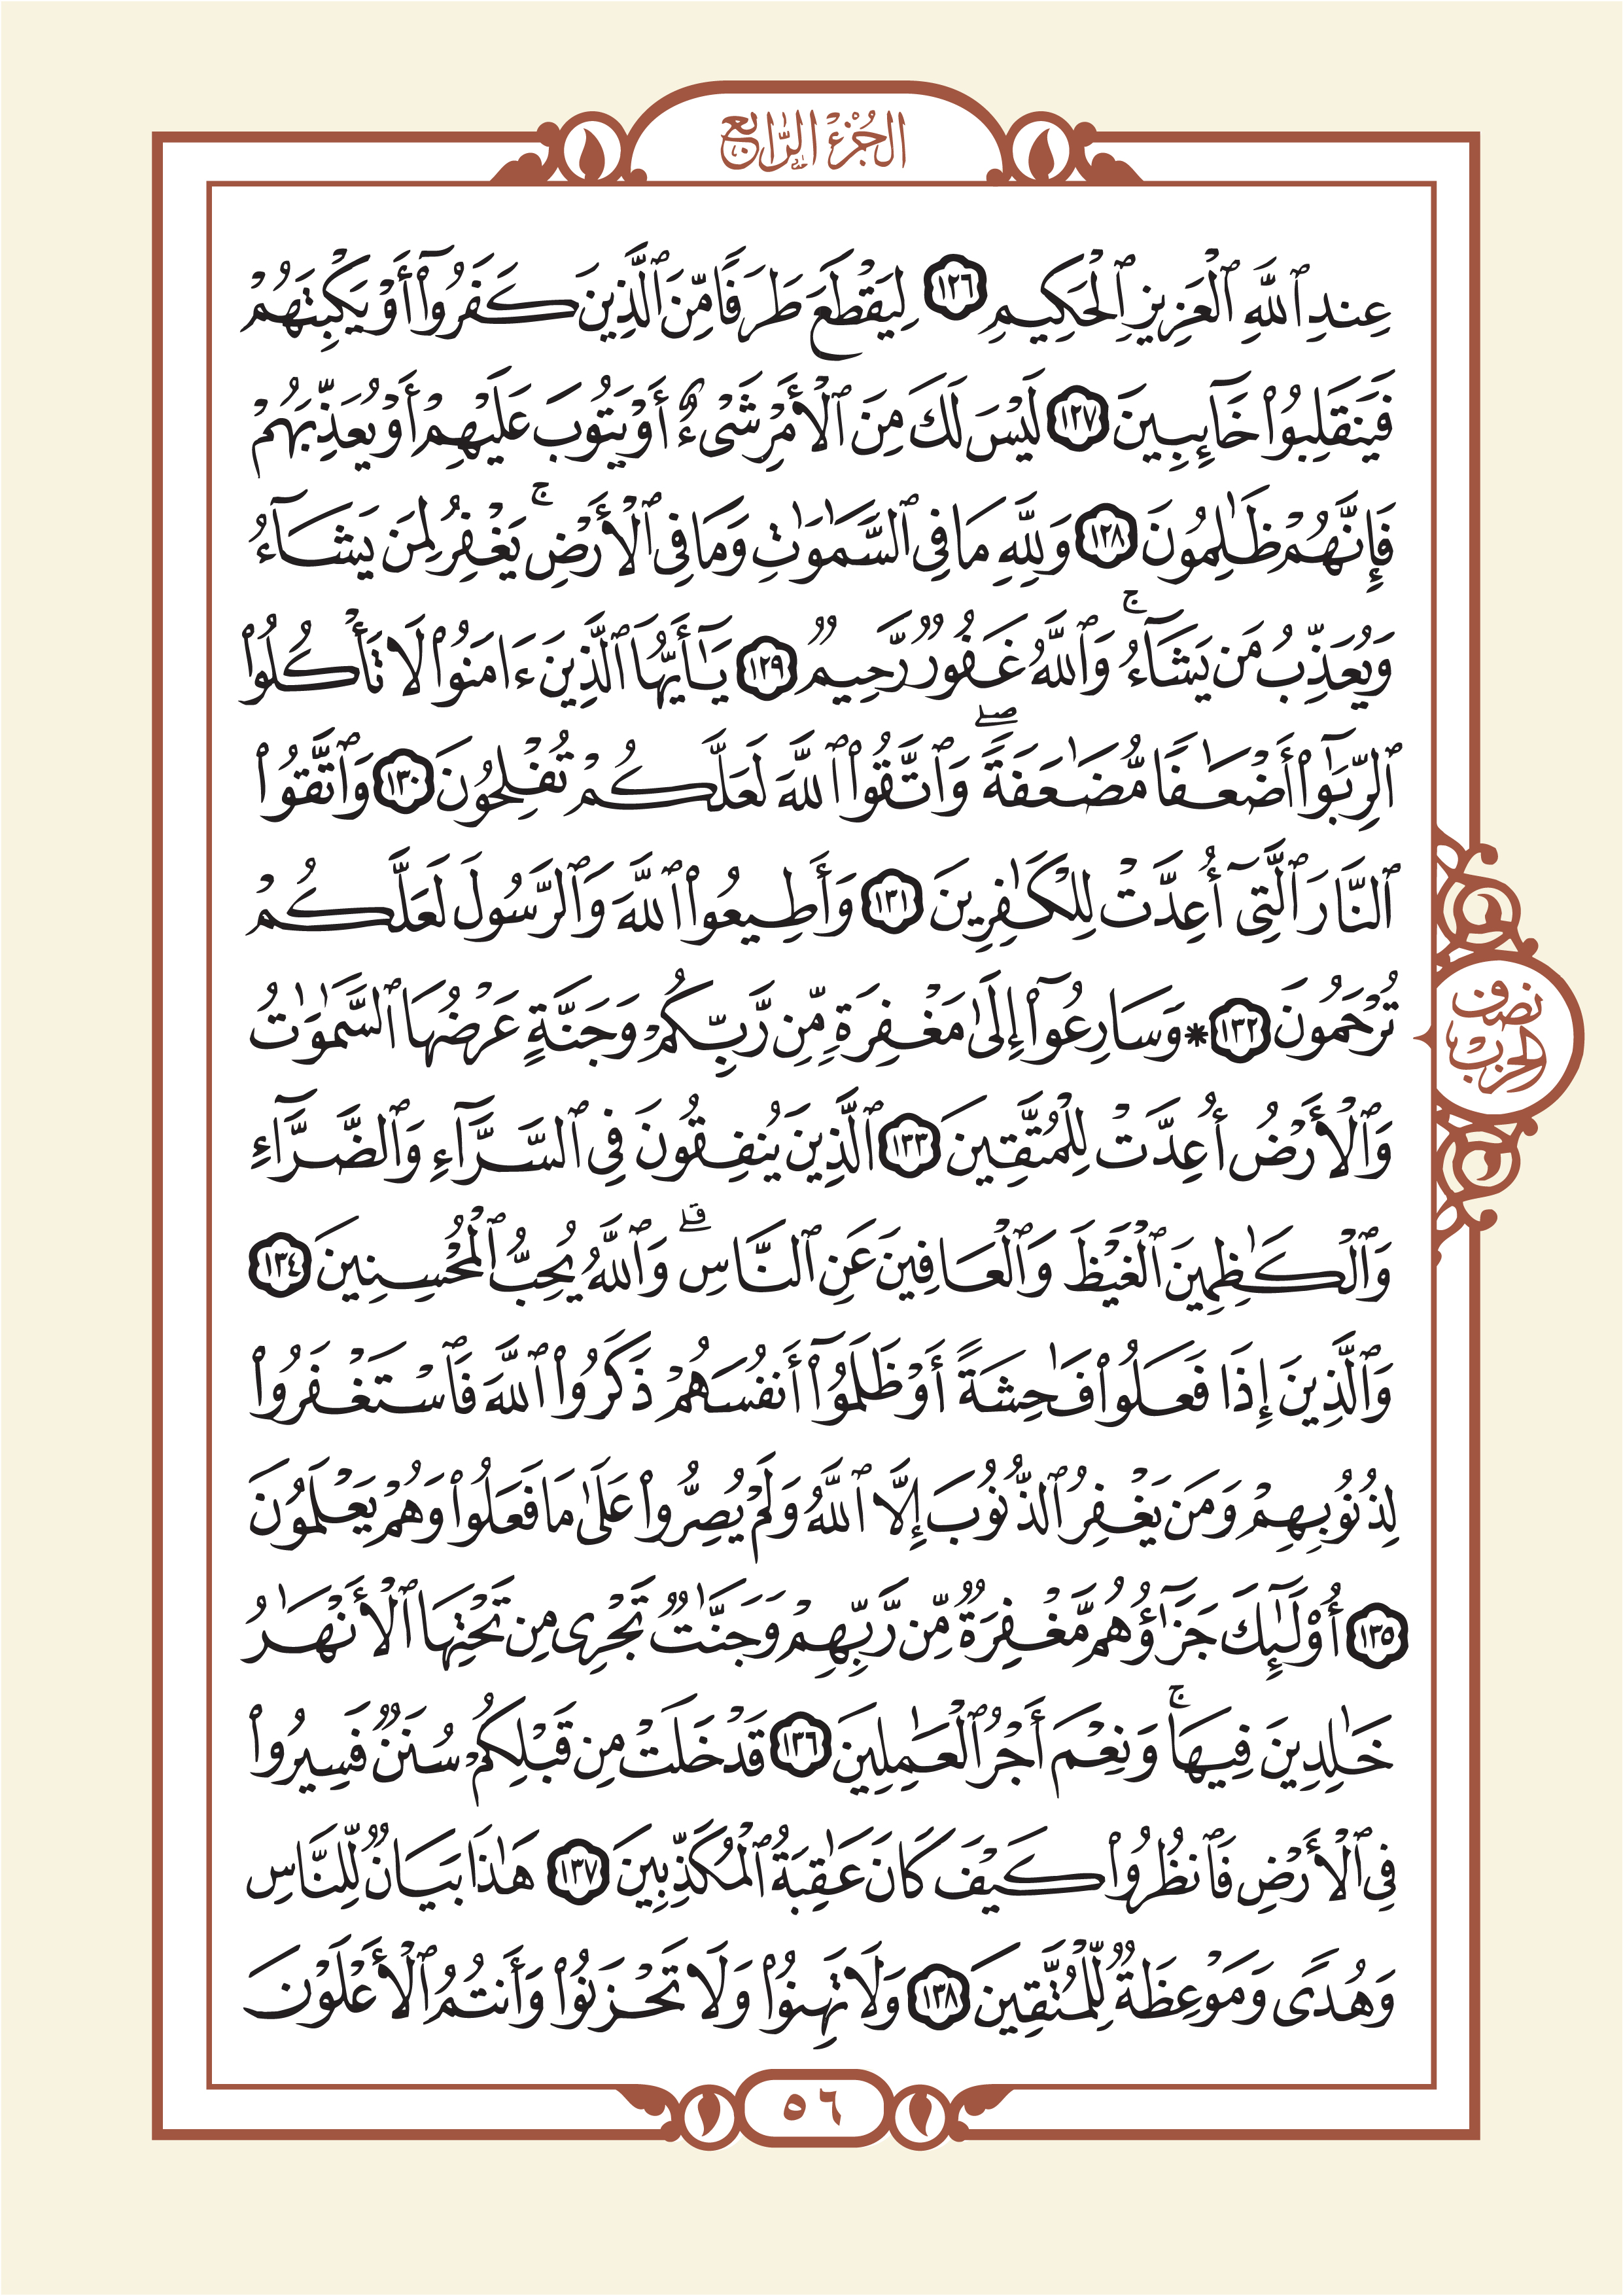 الجُزْءُ الرَّابِعُ
عِندِ ٱللَّهِ ٱلْعَزِيزِ ٱلْحَكِيمِ ١٢٦ لِيَقْطَعَ طَرَفًا مِّنَ ٱلَّذِينَ كَفَرُوٓا۟ أَوْ يَكْبِتَهُمْ
فَيَنقَلِبُوا۟ خَآئِبِينَ ١٢٧ لَيْسَ لَكَ مِنَ ٱلْأَمْرِ شَىْءٌ أَوْ يَتُوبَ عَلَيْهِمْ أَوْ يُعَذِّبَهُمْ
فَإِنَّهُمْ ظَٰلِمُونَ ١٢٨ وَلِلَّهِ مَا فِى ٱلسَّمَٰوَٰتِ وَمَا فِى ٱلْأَرْضِ ۚ يَغْفِرُ لِمَن يَشَآءُ
وَيُعَذِّبُ مَن يَشَآءُ ۚ وَٱللَّهُ غَفُورٌ رَّحِيمٌ ١٢٩ يَٰٓأَيُّهَا ٱلَّذِينَ ءَامَنُوا۟ لَا تَأْكُلُوا۟
ٱلرِّبَوٰٓا۟ أَضْعَٰفًا مُّضَٰعَفَةً ۖ وَٱتَّقُوا۟ ٱللَّهَ لَعَلَّكُمْ تُفْلِحُونَ ١٣٠ وَٱتَّقُوا۟
ٱلنَّارَ ٱلَّتِىٓ أُعِدَّتْ لِلْكَٰفِرِينَ ١٣١ وَأَطِيعُوا۟ ٱللَّهَ وَٱلرَّسُولَ لَعَلَّكُمْ
تُرْحَمُونَ ١٣٢ * وَسَارِعُوٓا۟ إِلَىٰ مَغْفِرَةٍ مِّن رَّبِّكُمْ وَجَنَّةٍ عَرْضُهَا ٱلسَّمَٰوَٰتُ
وَٱلْأَرْضُ أُعِدَّتْ لِلْمُتَّقِينَ ١٣٣ ٱلَّذِينَ يُنفِقُونَ فِى ٱلسَّرَّآءِ وَٱلضَّرَّآءِ
وَٱلْكَٰظِمِينَ ٱلْغَيْظَ وَٱلْعَافِينَ عَنِ ٱلنَّاسِ ۗ وَٱللَّهُ يُحِبُّ ٱلْمُحْسِنِينَ ١٣٤
وَٱلَّذِينَ إِذَا فَعَلُوا۟ فَٰحِشَةً أَوْ ظَلَمُوٓا۟ أَنفُسَهُمْ ذَكَرُوا۟ ٱللَّهَ فَٱسْتَغْفَرُوا۟
لِذُنُوبِهِمْ وَمَن يَغْفِرُ ٱلذُّنُوبَ إِلَّا ٱللَّهُ وَلَمْ يُصِرُّوا۟ عَلَىٰ مَا فَعَلُوا۟ وَهُمْ يَعْلَمُونَ
١٣٥ أُو۟لَٰٓئِكَ جَزَآؤُهُم مَّغْفِرَةٌ مِّن رَّبِّهِمْ وَجَنَّٰتٌ تَجْرِى مِن تَحْتِهَا ٱلْأَنْهَٰرُ
خَٰلِدِينَ فِيهَا ۚ وَنِعْمَ أَجْرُ ٱلْعَٰمِلِينَ ١٣٦ قَدْ خَلَتْ مِن قَبْلِكُمْ سُنَنٌ فَسِيرُوا۟
فِى ٱلْأَرْضِ فَٱنظُرُوا۟ كَيْفَ كَانَ عَٰقِبَةُ ٱلْمُكَذِّبِينَ ١٣٧ هَٰذَا بَيَانٌ لِّلنَّاسِ
وَهُدًى وَمَوْعِظَةٌ لِّلْمُتَّقِينَ ١٣٨ وَلَا تَهِنُوا۟ وَلَا تَحْزَنُوا۟ وَأَنتُمُ ٱلْأَعْلَوْنَ
نصف
الحزب
٥٦